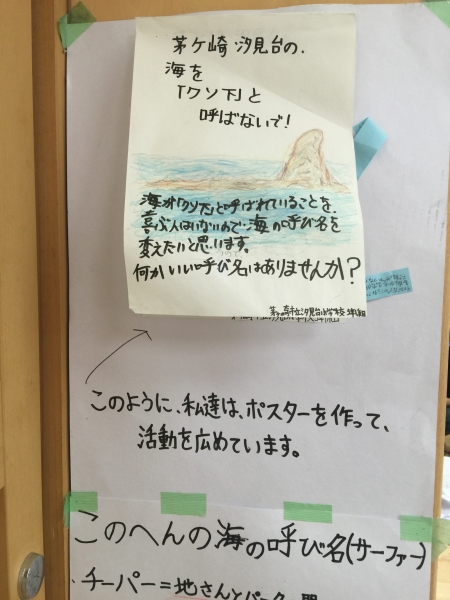 茅ケ崎 汐見台の.
海を
「クソ下」と
呼ばないで!
海が「クソ下」と呼ばれていることを、
喜ぶ人はいないので海の呼び名を
変えたいと思います。
何かいい呼び名はありませんか?
茅ヶ崎市立汐見台小学校
このように、私達は、ポスターを作って、
活動を広めています。
このへんの海の呼び名(サーファー)
チーパー=地さんとパーク